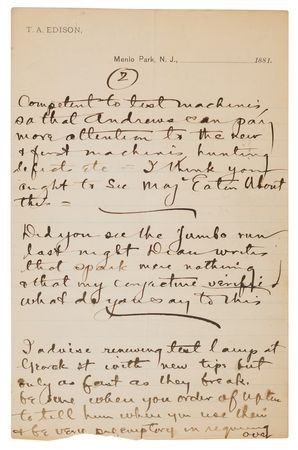 T. A. EDISON,
Menlo Park, N. J., 1881.
2
Competent to test machines
so that Andrews can pay
more attention to the new
& first machines hunting
defects etc — I think you
ought to see Maj Eaton about
this =
Did you see the Jumbo run
last night Dean writes
that spark mere nothing
& that my conjecture verified
what do you say to this
I advise renewing test lamps at
St with new tips but
only as fast as they break.
be sure when you order of Upton
to tell him where you use them
& be very peremptory in requiring
over